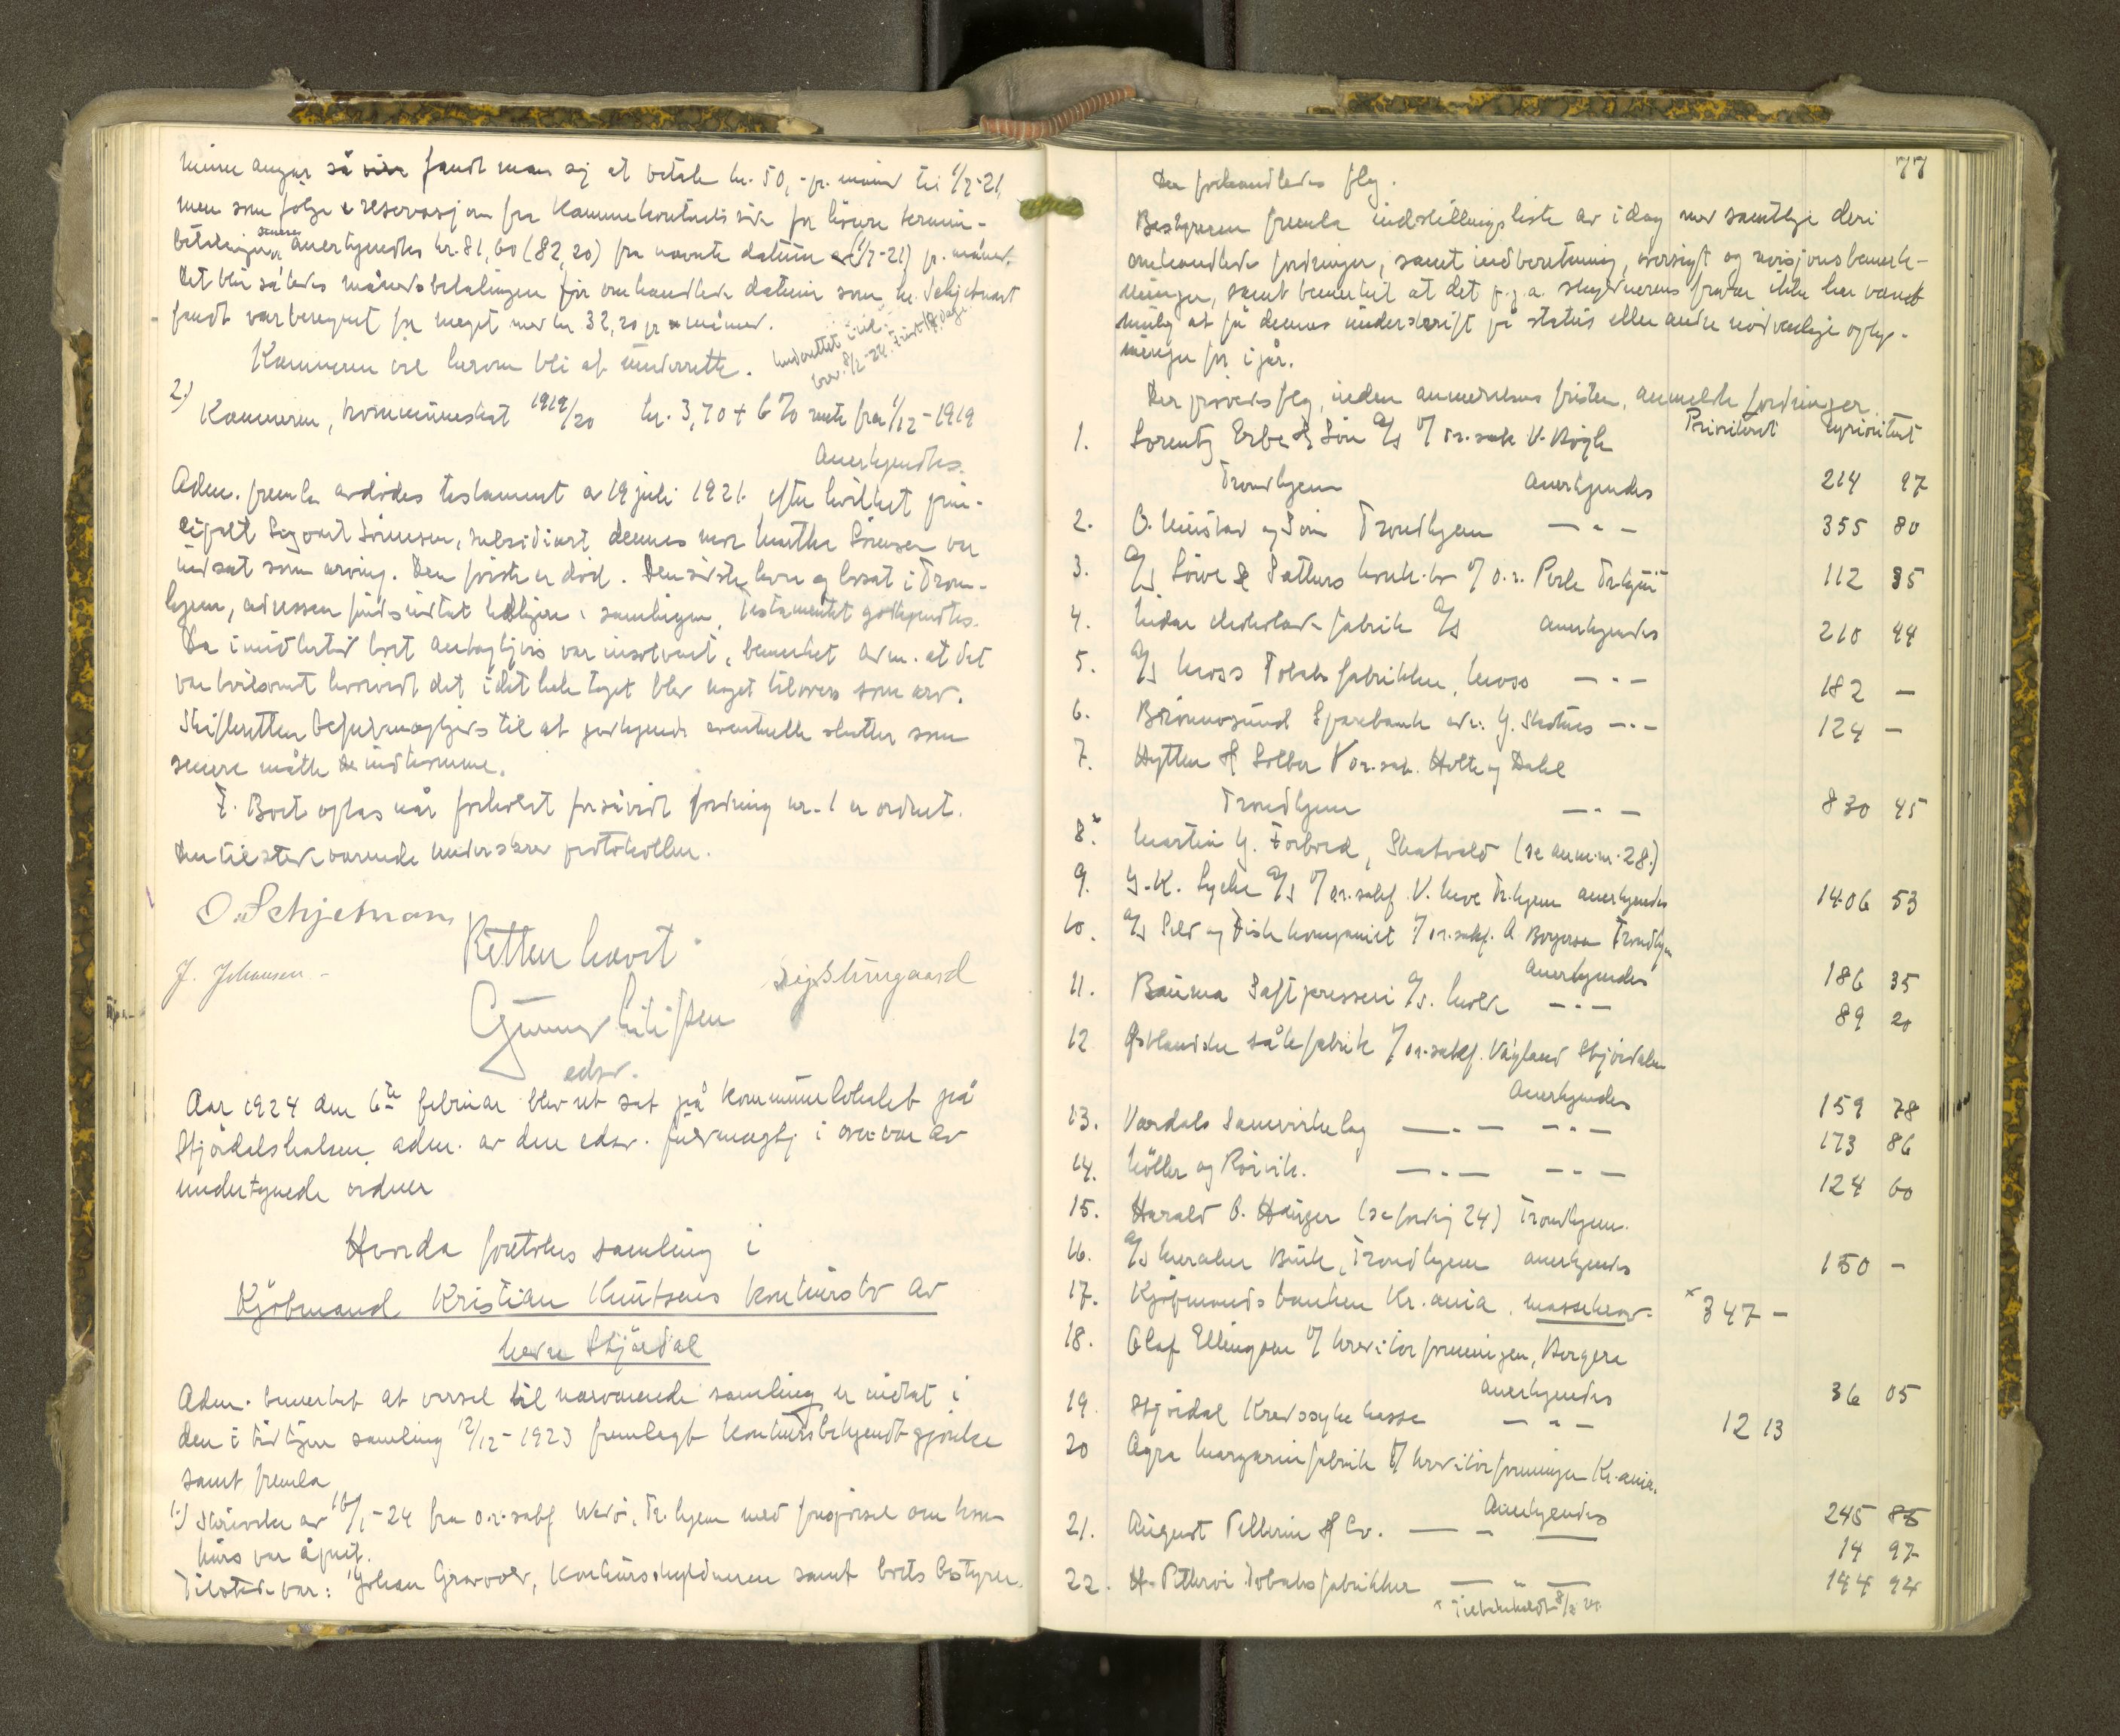 minn angår så fandt man sig at betale kr. 50,- pr. måned til 1/7-21,
men som følge reservasjon fra Kammerkontorets side for lavere termin-
betalinger senere anerkjendtes kr. 81,60 (82,20) fra nævnte datum (1/7-21) pr. måned.
Det blir således månedsbetalingen før omhandlede datum som hr. Schjetnart
fandt var beregnet for meget med kr 32,20 pr måned.
Kæmneren vil herom bli at underrette. Underrettet i brev 8/2-24. Frist 14 dage
2.) Kæmneren, kommuneskat 1919/20 kr. 3,70 + 6% rente fra 1/12-1919
Anerkjendtes.
Adm. fremla avdødes testament av 19 juli 1921 efter hvilket prin-
cipalt Sigvart Sørensen, subsidiært dennes mor Marthe Sørensen var
indsat som arving. Den første er død. Den sidste lever og bosat i Trond-
hjem, adressen findes indtat tidligere i samlingen. Testamentet godkjendtes.
Da imidlertid boet antagligvis var insolvent, bemerket adm. at det
var tvilsomt hvorvidt det i det hele taget blev noget tilovers som arv.
Skifteretten befuldmægtiges til at godkjende eventuelle skatter som
senere måtte indkomme.
F. Boet optas når forholdet forsåvidt fordring nr. 1 er ordnet.
Den tilstedeværende underskrev protokollen.
O. Schjetnan
Retten hævet.
J. Johansen - Sig. Stuugaard
Gunnar
edsv.
Aar 1924 den 6te februar blev ret sat på kommunelokalet på
Stjørdalshalsen, adm. av den edsv. fuldmægtig i overvær av
undertegnede vidner
Hvorda foretokes samling i
Kjøbmand Kristian Knutsens konkursbo av
nedre Stjørdal
Adm. bemerket at varsel til nærværende samling er indtat i
den i tidligere samling 12/12-1923 fremlagt konkursbekjendtgjørelse
samt fremla
1.) Skrivelse av 16/1-24 fra o.r.sakf Wedø, Tr.hjem med forespørsel om kon-
kurs var åpnet.
Tilstede var: Johan Gravvold, konkursskyldneren samt boets bestyrer.
77
Der forhandledes flg.
Bestyreren fremla indstillingsliste av idag med samtlige deri
omhandlede fordringer, samt indberetning, oversigt og revisjonsbemerk-
ninger, samt bemerket at det p.g.a. skyldnerens fravær ikke har været
mulig at få dennes underskrift på status eller andre nødvendige oplys-
ninger før igår.
Der prøvedes flg. inden anmeldelses fristen, anmeldte fordringer.
Prioritert Uprioritert
1. Lorentz Erbe & Søn A/S v/ o.r.sak V. Bøgh
Trondhjem Anerkjendes 214 97
2. O. Huistad og Søn Trondhjem — " — 355 80
3. A/S Löwe & Sattlers konk.bo v/ o.r. Perle Tr.hjem 112 85
4. Nidar chokoladefabrik A/S anerkjendes 210 44
5. A/S Moss Tobaksfabrikker, Moss — " — 182 —
6. Brønnøsund Sparebank adr: G. Skatnes — " — 124 —
7. Hytten & Solber v/ o.r.sak. Holte og Dahl
Trondhjem — " — 830 45
8.x Martin G. Forbord, Skatvald (se anm. nr. 28.)
9. G.K. Lycke A/S v/ o.r.sakf V. Lieve Tr.hjem anerkjendes 1406 53
10. A/S Sild og Fiskekompaniet v/ o.r.sakf. A Borgersen Trondhjem
Anerkjendes 186 35
11. Bauma Saftpresseri A/S. Molde — " — 89 20
12 Østlandske såpefabrik v/ o.r.sakf. Vågland Stjørdalen
Anerkjendes 159 78
13. Værdals Samvirkelag — " — — " — 173 86
14. Møller og Rørvik. — " — — " — 124 60
15. Harald O. Hauger (se fordrg 24) Trondhjem.
16. A/S Meraker Bruk, Trondhjem anerkjendes 150 —
17. Kjøpmandsbanken Kr.ania. massekrav. x 347 —
18. Olaf Ellingsen v/ kreditorforeningen, Bergen
anerkjendes 36 05
19. Stjørdal Kredssykekasse — " — 12 13
20 Agra Margarinfabrik v/ kreditorforeningen Kr.ania.
Anerkjendes 245 85
21. August Pellerin & Co. — " — 14 97
22. H. Petterøi Tobaksfabrikker — " — 144 94
x Tilbakekaldt 8/2 24.